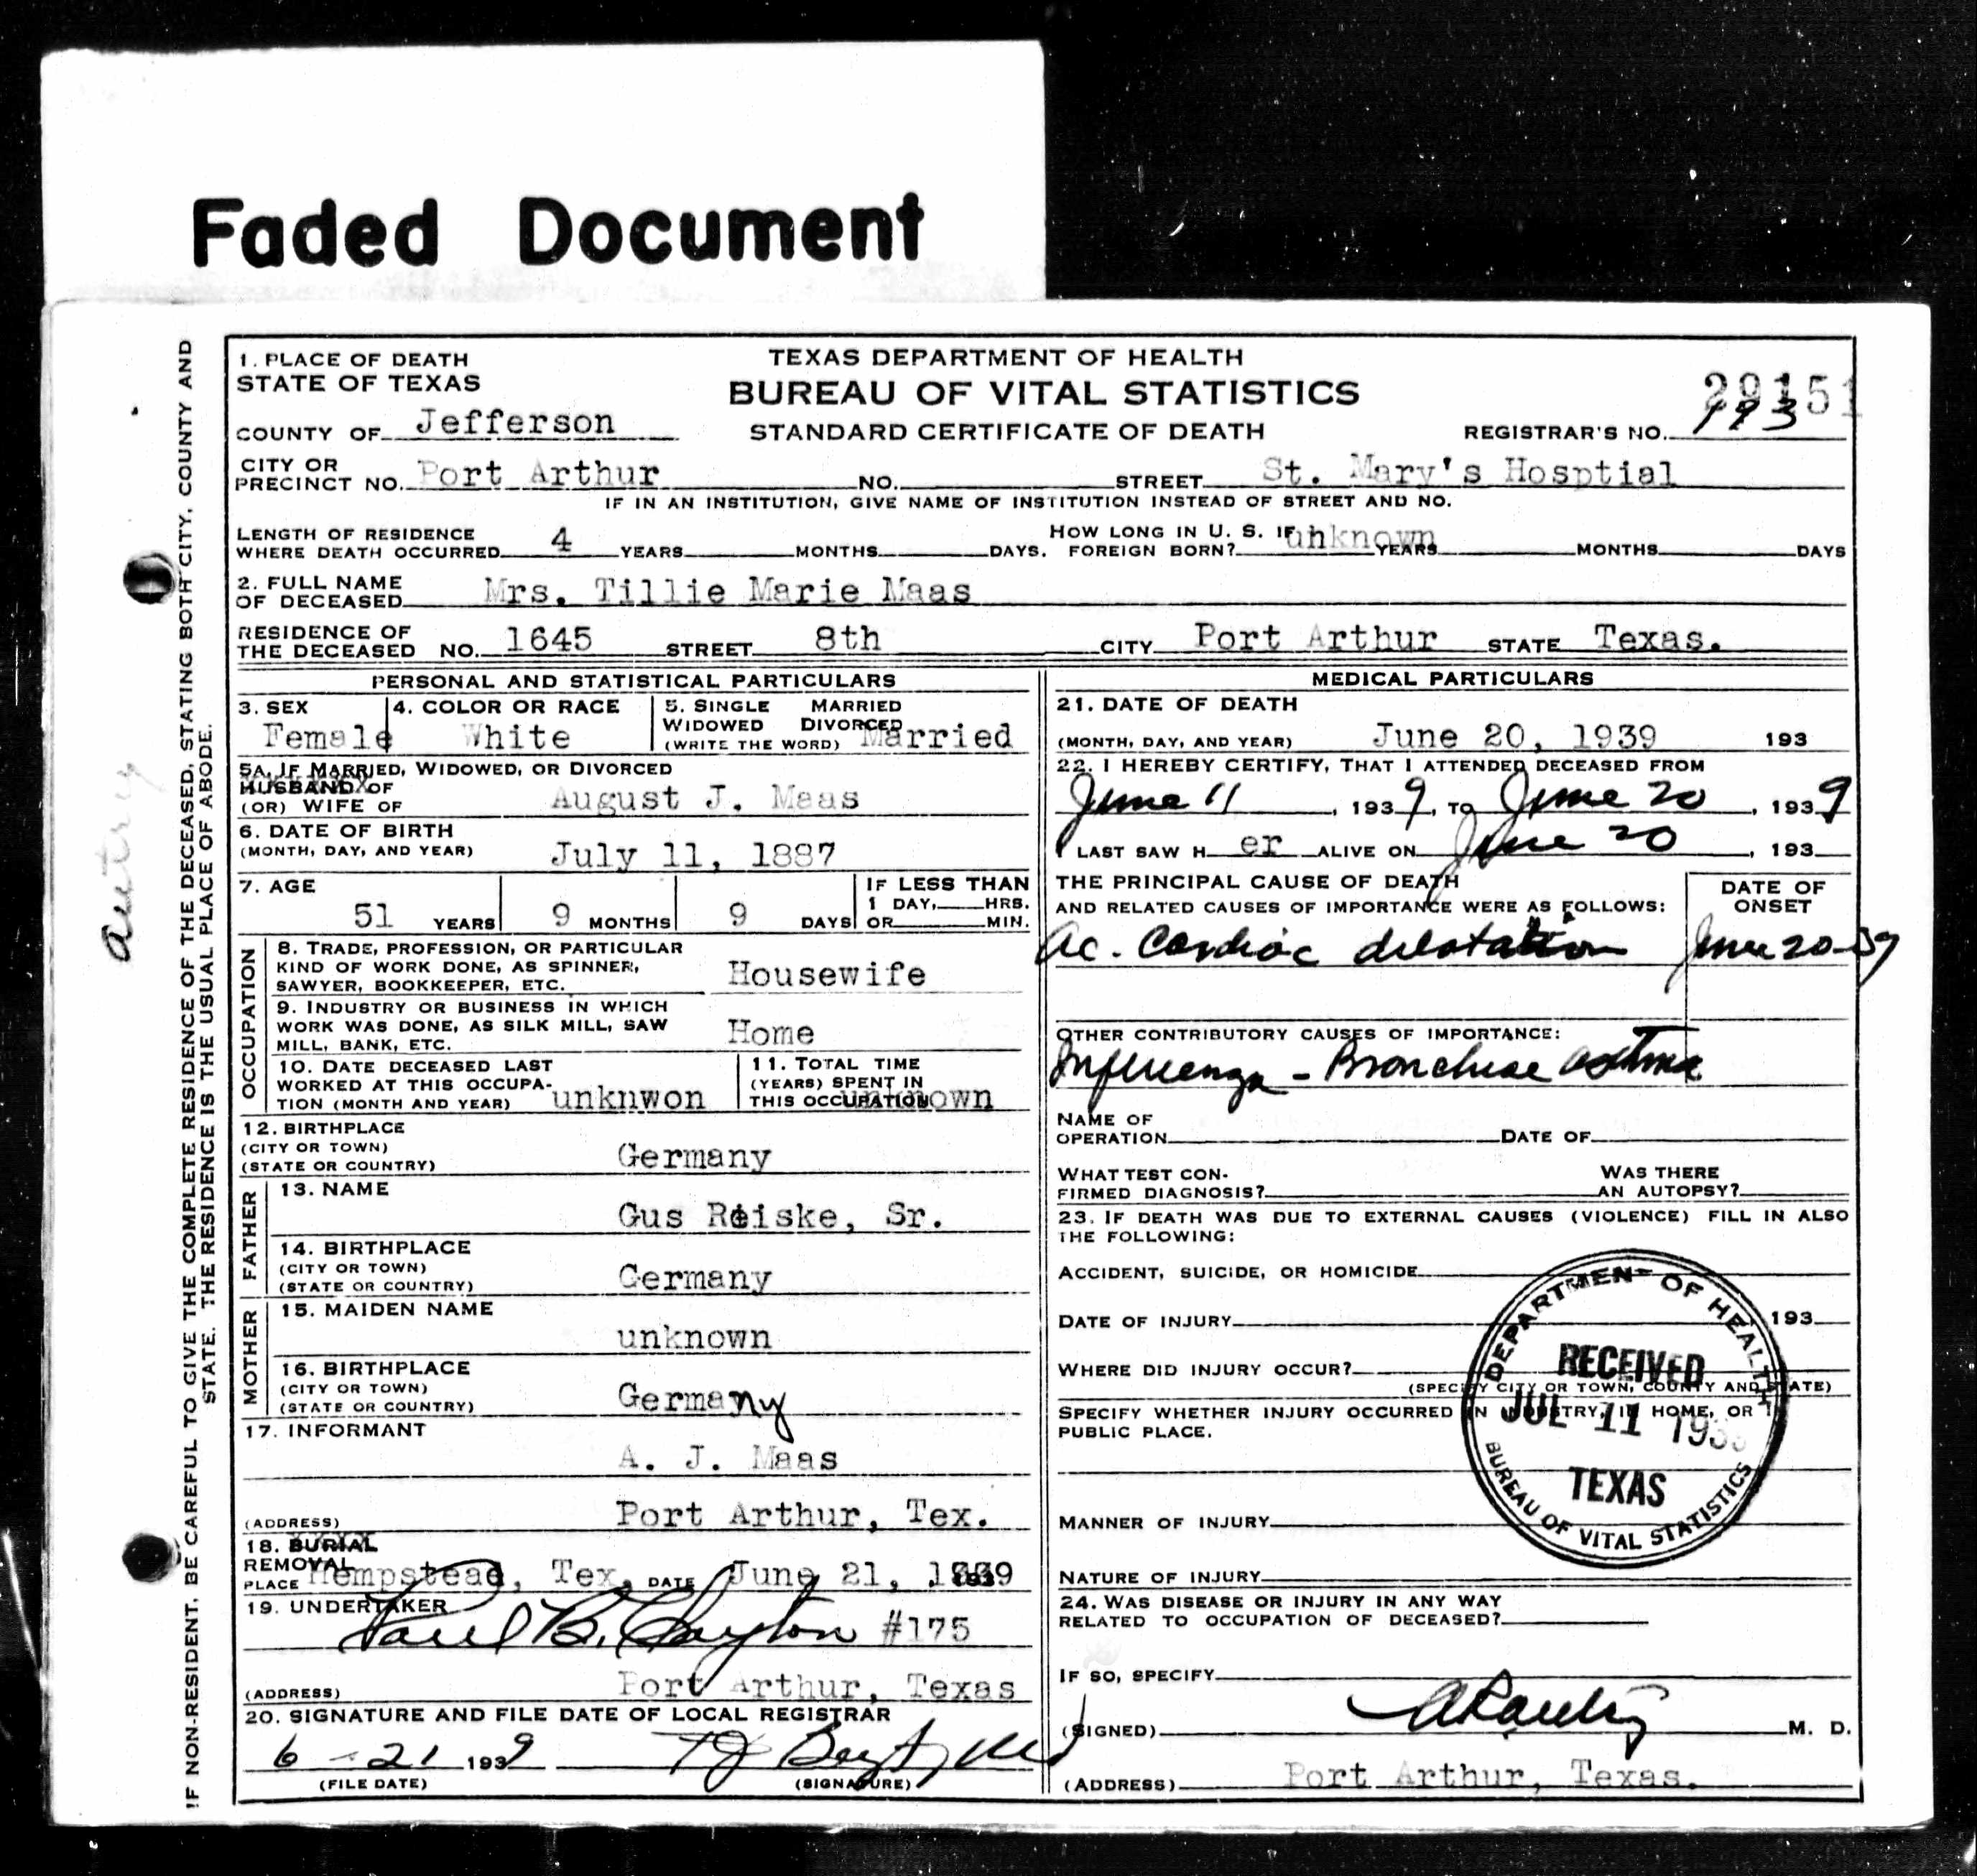 Faded Document
IF NON-RESIDENT, BE CAREFUL TO GIVE THE COMPLETE RESIDENCE OF THE DECEASED, STATING BOTH CITY, COUNTY AND
STATE. THE RESIDENCE IS THE USUAL PLACE OF ABODE.
Autry
1. PLACE OF DEATH
STATE OF TEXAS
TEXAS DEPARTMENT OF HEALTH
BUREAU OF VITAL STATISTICS
STANDARD CERTIFICATE OF DEATH
29151
COUNTY OF Jefferson
REGISTRAR'S NO. 193
CITY OR
PRECINCT NO. Port Arthur NO. STREET St. Mary's Hosptial
IF IN AN INSTITUTION, GIVE NAME OF INSTITUTION INSTEAD OF STREET AND NO.
LENGTH OF RESIDENCE
WHERE DEATH OCCURRED 4 YEARS MONTHS DAYS. HOW LONG IN U. S. IF FOREIGN BORN? unknown YEARS MONTHS DAYS
2. FULL NAME
OF DECEASED Mrs. Tillie Marie Maas
RESIDENCE OF
THE DECEASED NO. 1645 STREET 8th CITY Port Arthur STATE Texas.
PERSONAL AND STATISTICAL PARTICULARS
3. SEX Female
4. COLOR OR RACE White
5. SINGLE MARRIED
WIDOWED DIVORCED
(WRITE THE WORD) Married
5A. IF MARRIED, WIDOWED, OR DIVORCED
HUSBAND OF
(OR) WIFE OF August J. Maas
6. DATE OF BIRTH
(MONTH, DAY, AND YEAR) July 11, 1887
7. AGE
51 YEARS 9 MONTHS 9 DAYS
IF LESS THAN
1 DAY, HRS.
OR MIN.
OCCUPATION
8. TRADE, PROFESSION, OR PARTICULAR
KIND OF WORK DONE, AS SPINNER,
SAWYER, BOOKKEEPER, ETC. Housewife
9. INDUSTRY OR BUSINESS IN WHICH
WORK WAS DONE, AS SILK MILL, SAW
MILL, BANK, ETC. Home
10. DATE DECEASED LAST
WORKED AT THIS OCCUPA-
TION (MONTH AND YEAR) unknwon
11. TOTAL TIME
(YEARS) SPENT IN
THIS OCCUPATION unknown
12. BIRTHPLACE
(CITY OR TOWN)
(STATE OR COUNTRY) Germany
FATHER
13. NAME
Gus Reiske, Sr.
14. BIRTHPLACE
(CITY OR TOWN)
(STATE OR COUNTRY) Germany
MOTHER
15. MAIDEN NAME
unknown
16. BIRTHPLACE
(CITY OR TOWN)
(STATE OR COUNTRY) Germany
17. INFORMANT
A. J. Maas
(ADDRESS) Port Arthur, Tex.
18. BURIAL
REMOVAL
PLACE Hempstead, Tex. DATE June 21, 1939
19. UNDERTAKER
Paul B. Clayton #175
(ADDRESS) Port Arthur, Texas
20. SIGNATURE AND FILE DATE OF LOCAL REGISTRAR
6 - 21 1939
(FILE DATE) (SIGNATURE)
MEDICAL PARTICULARS
21. DATE OF DEATH
(MONTH, DAY, AND YEAR) June 20, 1939 193
22. I HEREBY CERTIFY, THAT I ATTENDED DECEASED FROM
June 11, 1939, TO June 20, 1939
I LAST SAW H er ALIVE ON June 20, 193
THE PRINCIPAL CAUSE OF DEATH
AND RELATED CAUSES OF IMPORTANCE WERE AS FOLLOWS:
DATE OF
ONSET
Ac. Cardiac dilatation June 20-39
OTHER CONTRIBUTORY CAUSES OF IMPORTANCE:
Influenza - Bronchial
NAME OF
OPERATION DATE OF
WHAT TEST CON-
FIRMED DIAGNOSIS? WAS THERE
AN AUTOPSY?
23. IF DEATH WAS DUE TO EXTERNAL CAUSES (VIOLENCE) FILL IN ALSO
THE FOLLOWING:
ACCIDENT, SUICIDE, OR HOMICIDE
DATE OF INJURY 193
WHERE DID INJURY OCCUR?
(SPECIFY CITY OR TOWN, COUNTY AND STATE)
SPECIFY WHETHER INJURY OCCURRED IN INDUSTRY, IN HOME, OR IN
PUBLIC PLACE.
MANNER OF INJURY
NATURE OF INJURY
24. WAS DISEASE OR INJURY IN ANY WAY
RELATED TO OCCUPATION OF DECEASED?
IF SO, SPECIFY
(SIGNED) M. D.
(ADDRESS) Port Arthur, Texas.
DEPARTMENT OF HEALTH
RECEIVED
JUL 11 1939
TEXAS
BUREAU OF VITAL STATISTICS